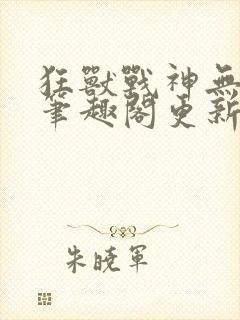 狂獸戰神無
筆趣閣更新
朱曉軍